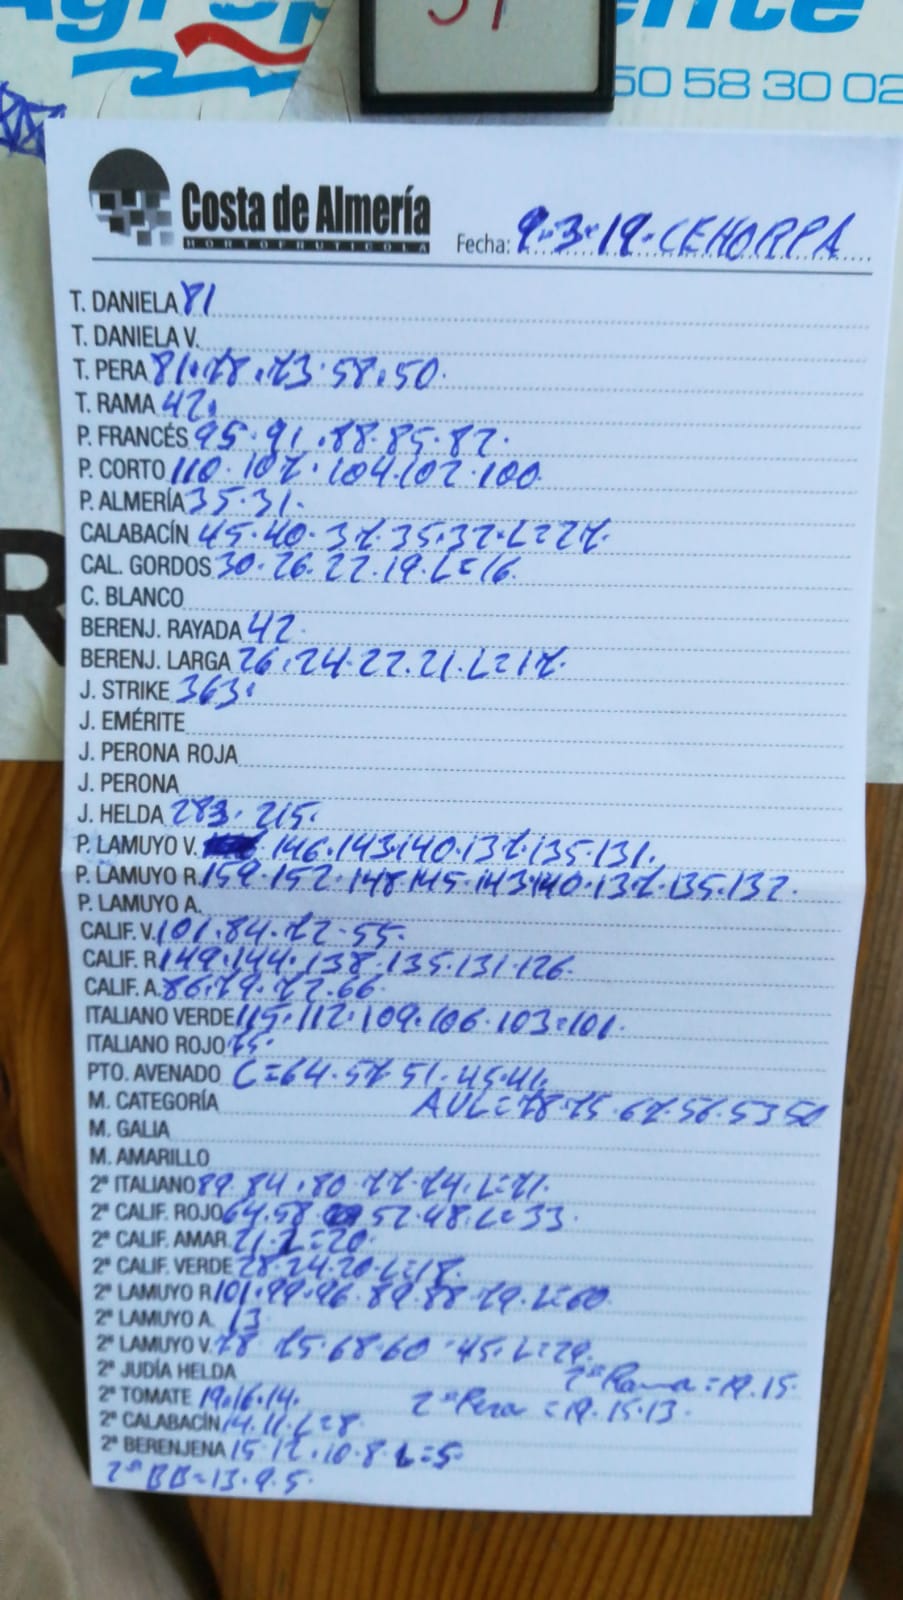 50 58 30 02
Costa de Almería
HORTOFRUTICOLA
Fecha: 9-3-19-CEHORPA
T. DANIELA 81
T. DANIELA V.
T. PERA 81.78.73.58.50.
T. RAMA 42.
P. FRANCÉS 95.91.88.85.82.
P. CORTO 110.107.104.102.100
P. ALMERÍA 35.31.
CALABACÍN 45.40.37.35.32.L=27.
CAL. GORDOS 30.26.22.19.L=16.
C. BLANCO
BERENJ. RAYADA 42.
BERENJ. LARGA 26.24.22.21.L=17.
J. STRIKE 363.
J. EMÉRITE
J. PERONA ROJA
J. PERONA
J. HELDA 283.215.
P. LAMUYO V. 146.143.140.137.135.131.
P. LAMUYO R. 159.152.148.145.143.140.137.135.132.
P. LAMUYO A.
CALIF. V. 101.84.72.55.
CALIF. R 149.144.138.135.131.126.
CALIF. A. 86.79.72.66.
ITALIANO VERDE 115.112.109.106.103.101.
ITALIANO ROJO 75.
PTO. AVENADO C=64.57.51.45.41.
M. CATEGORÍA AVL=78.75.67.56.53.50
M. GALIA
M. AMARILLO
2ª ITALIANO 89.84.80.77.74.L=71.
2ª CALIF. ROJO 64.58.52.48.L=33.
2ª CALIF. AMAR. 21.L=20.
2ª CALIF. VERDE 28.24.20.L=18.
2ª LAMUYO R. 101.99.96.89.88.79.L=60.
2ª LAMUYO A. 13
2ª LAMUYO V. 78.75.68.60.45.L=29.
2ª JUDÍA HELDA 2ª Rama=19.15.
2ª TOMATE 19.16.14. 2ª Pera=19.15.13.
2ª CALABACÍN 14.11.L=8.
2ª BERENJENA 15.12.10.8.L=5.
2ª BB=13.9.5.